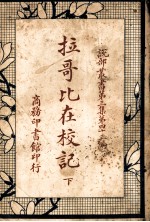 說部叢書第三集第四
拉哥比在校記
下
商務印書館印行